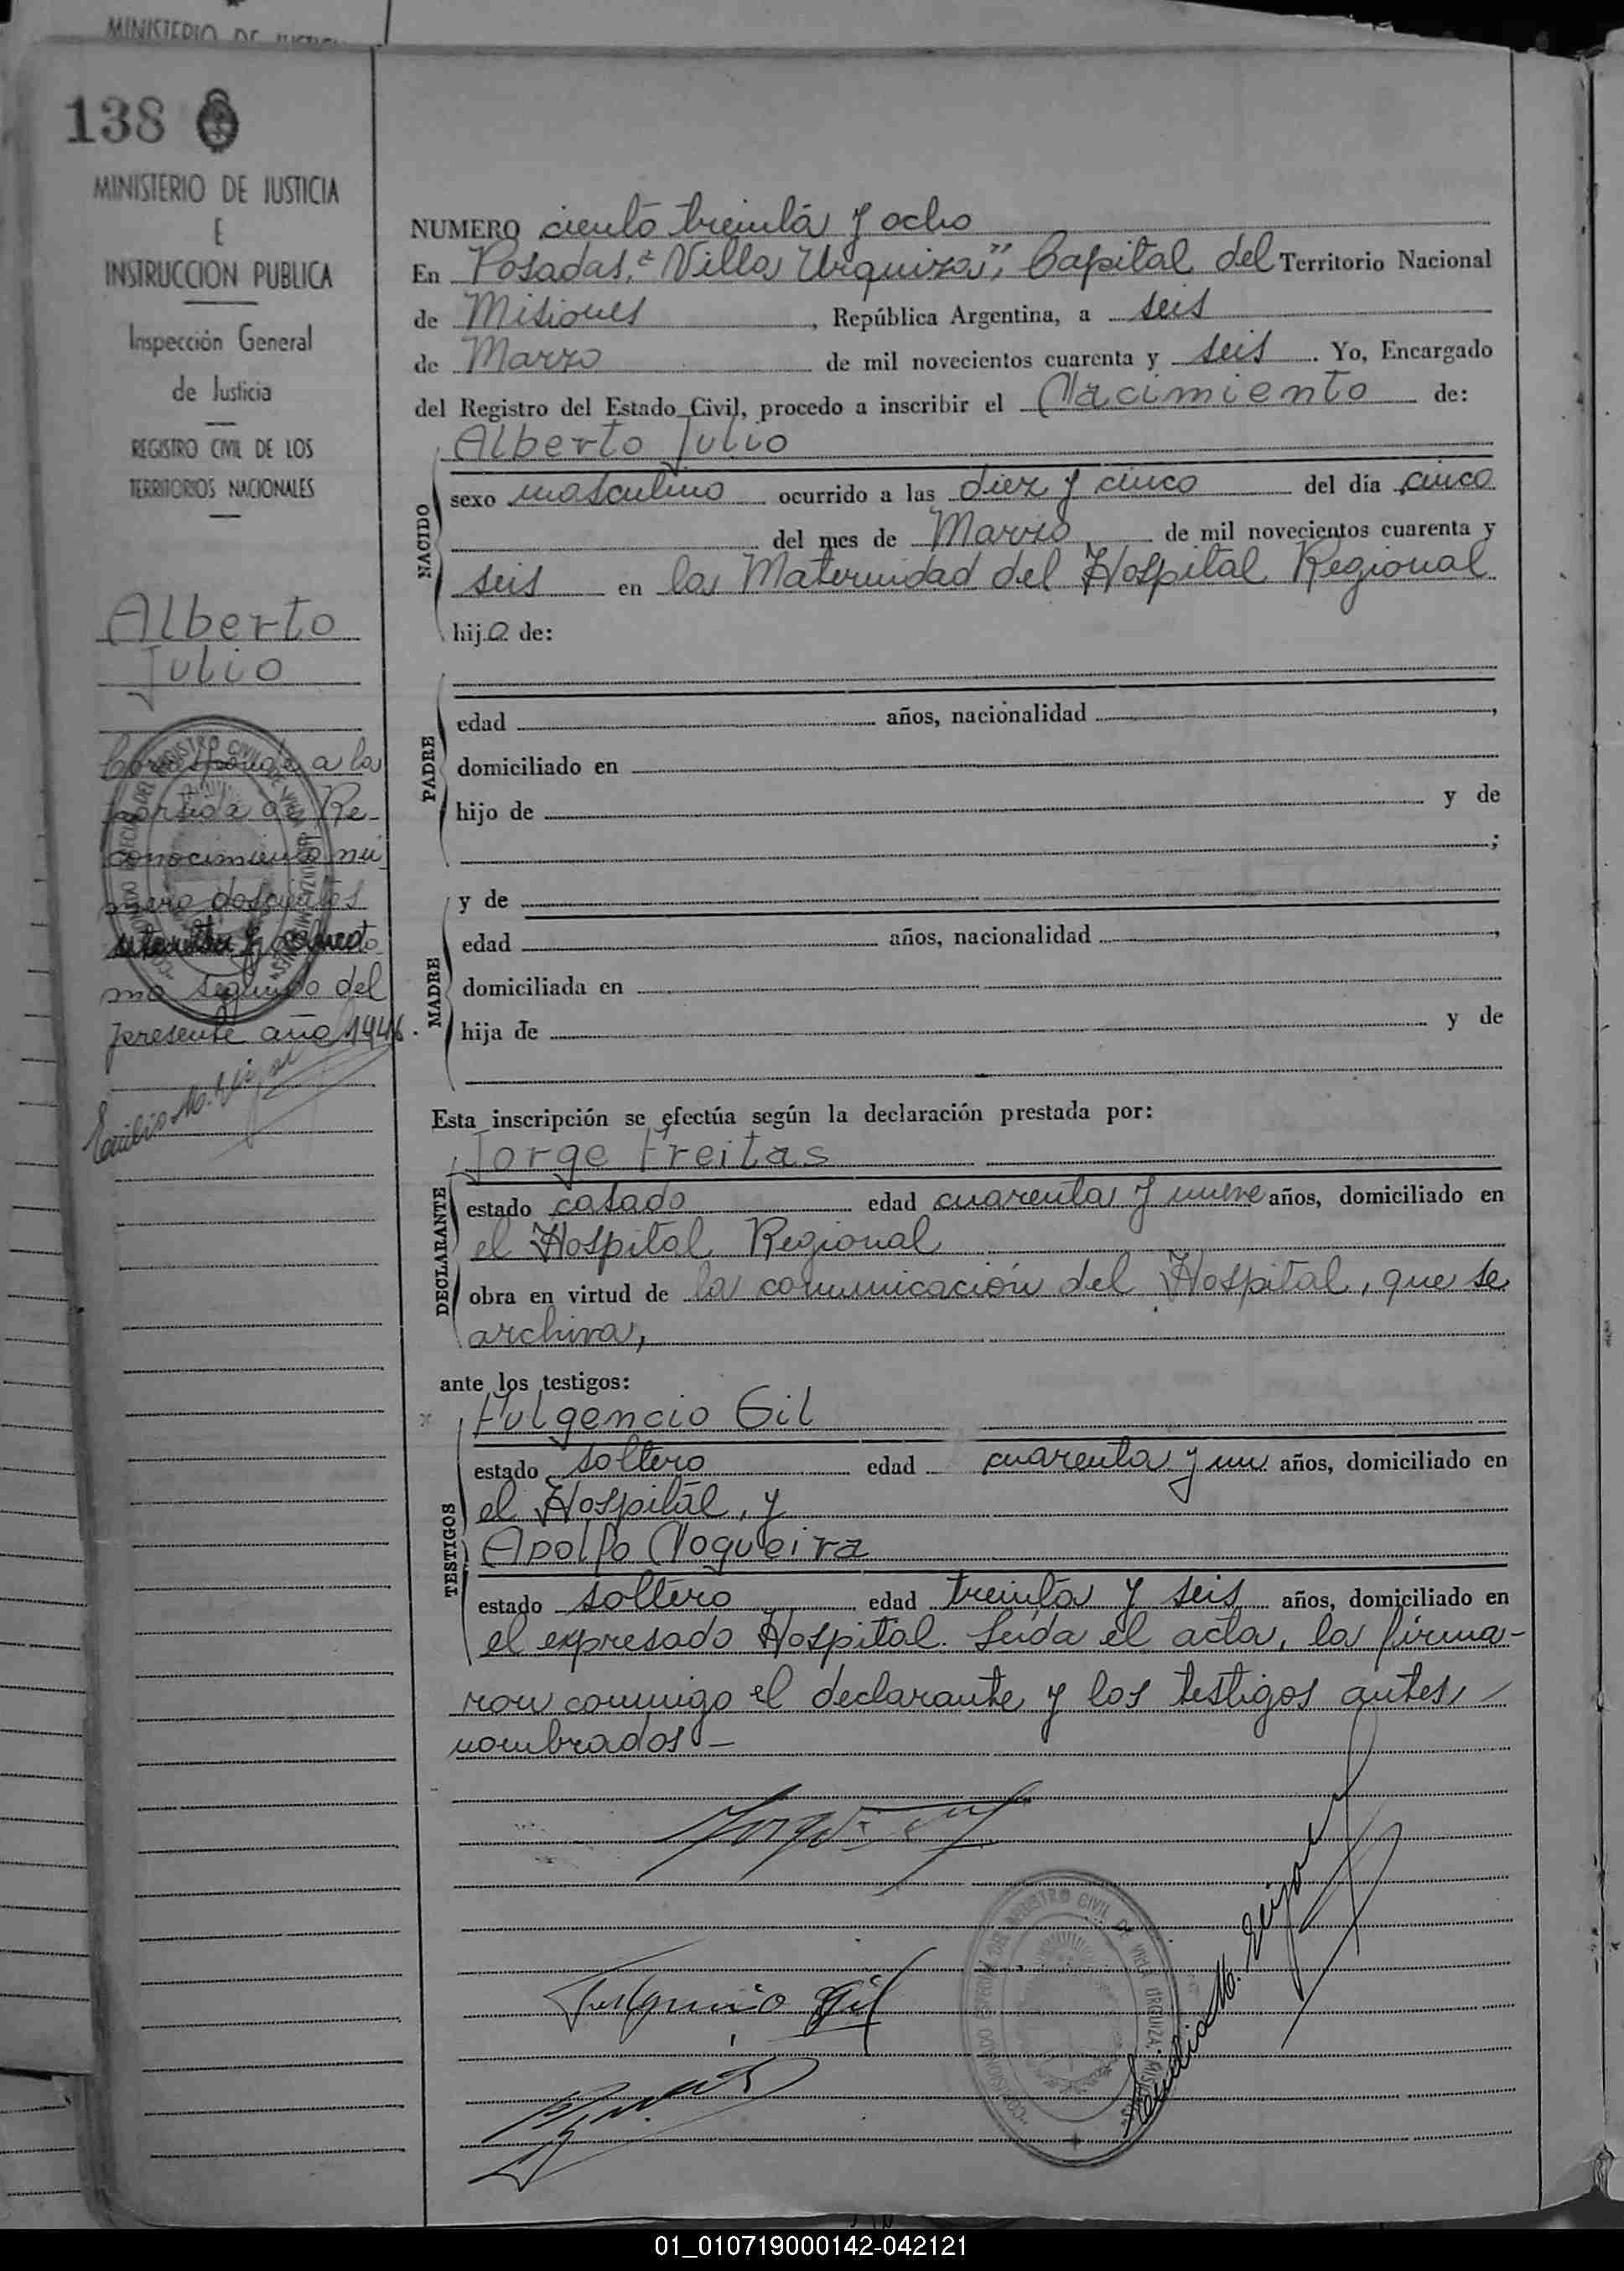 MINISTERIO DE JUSTICIA
138
MINISTERIO DE JUSTICIA
E
INSTRUCCION PUBLICA
Inspección General
de Justicia
REGISTRO CIVIL DE LOS
TERRITORIOS NACIONALES
Alberto
Julio
Corresponde a la
partida de Re-
conocimiento nú
mero doscientos
mo segundo del
presente año 1946.
NUMERO ciento treinta y ocho
En Posadas, "Villa Urquiza", Capital del Territorio Nacional
de Misiones, República Argentina, a seis
de Marzo de mil novecientos cuarenta y seis. Yo, Encargado
del Registro del Estado Civil, procedo a inscribir el Nacimiento de:
Alberto Julio
NACIDO
sexo masculino ocurrido a las diez y cinco del día cinco
del mes de Marzo de mil novecientos cuarenta y
seis en la Maternidad del Hospital Regional
hijo de:
PADRE
edad años, nacionalidad ,
domiciliado en
hijo de y de
;
MADRE
y de
edad años, nacionalidad ,
domiciliada en
hija de y de
Esta inscripción se efectúa según la declaración prestada por:
Jorge Freitas
DECLARANTE
estado casado edad cuarenta y nueve años, domiciliado en
el Hospital Regional
obra en virtud de la comunicación del Hospital, que se
archiva,
ante los testigos:
Fulgencio Gil
TESTIGOS
estado soltero edad cuarenta y un años, domiciliado en
el Hospital, y
Adolfo Nogueira
estado soltero edad treinta y seis años, domiciliado en
el expresado Hospital. Leída el acta, la firma-
ron conmigo el declarante y los testigos antes
nombrados -
Fulgencio Gil
REGISTRO CIVIL DE VILLA URQUIZA, MISIONES
01_010719000142-042121